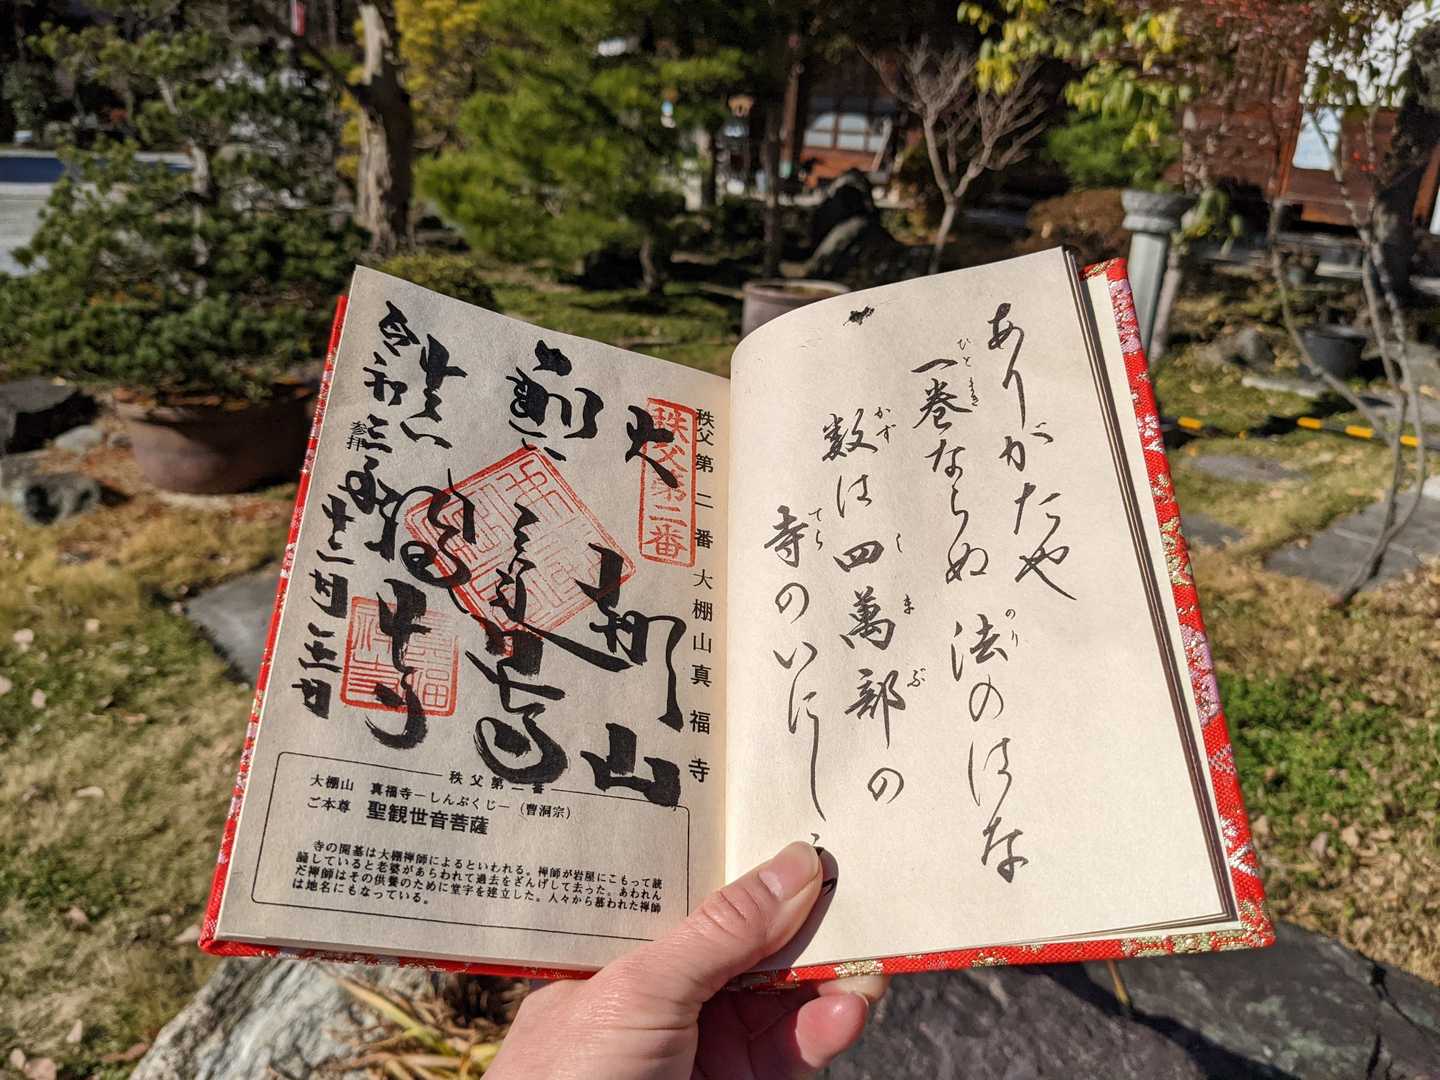 ありがたや
一巻ならぬ 法のはな
ひとまき のり
数は四萬部の
かず しまぶ
寺のいにし
てら
秩父第二番 大棚山真福寺
秩父第二番
大棚山
参拝
令和三年十二月
秩父第二番
大棚山 真福寺―しんぷくじ―（曹洞宗）
ご本尊 聖観世音菩薩
寺の開基は大棚禅師によるといわれる。禅師が岩屋にこもって読
誦していると老婆があらわれて過去をざんげして去った。あわれん
だ禅師はその供養のために堂宇を建立した。人々から慕われた禅師
は地名にもなっている。